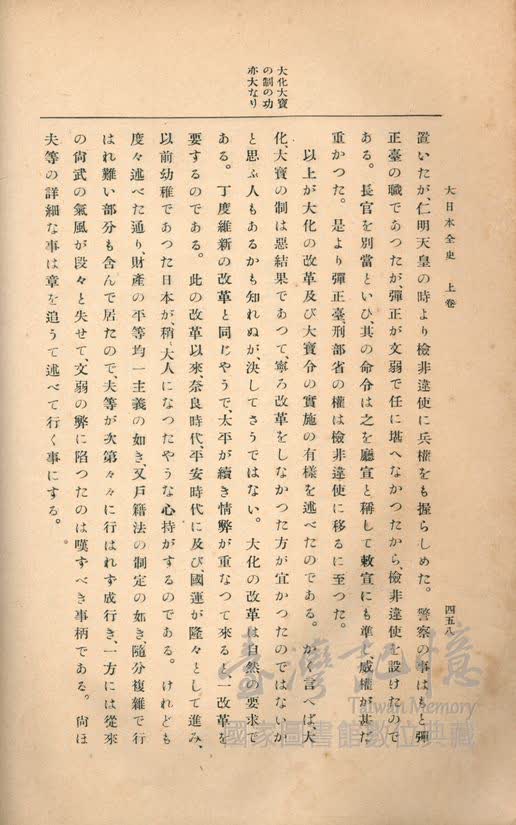 大日本全史　上卷
四五八
大化大寶
の制の功
亦大なり
置いたが、仁明天皇の時より檢非違使に兵權をも握らしめた。　警察の事はもと彈
正臺の職であつたが、彈正が文弱で任に堪へなかつたから、檢非違使を設けたので
ある。　長官を別當といひ、其の命令は之を廳宣と稱して敕宣にも準じ、威權が甚だ
重かつた。　是より彈正臺、刑部省の權は檢非違使に移るに至つた。
　以上が大化の改革及び大寶令の實施の有樣を述べたのである。　かく言へば、大
化、大寶の制は惡結果であつて、寧ろ改革をしなかつた方が宜かつたのではないか
と思ふ人もあるかも知れぬが、決してさうではない。　大化の改革は自然の要求で
ある。　丁度維新の改革と同じやうで、太平が續き情弊が重なつて來ると、一改革を
要するのである。　此の改革以來、奈良時代、平安時代に及び、國運が隆々として進み、
以前幼稚であつた日本が、稍〻大人になつたやうな心持がするのである。　けれども
度々述べた通り、財產の平等均一主義の如き、又戶籍法の制定の如き、隨分複雜で行
はれ難い部分も含んで居たので、夫等が次第々々に行はれず成行き、一方には從來
の尙武の氣風が段々と失せて、文弱の弊に陷つたのは嘆すべき事柄である。　尙ほ
夫等の詳細な事は章を追うて述べて行く事にする。
臺灣記憶
Taiwan Memory
國家圖書館數位典藏